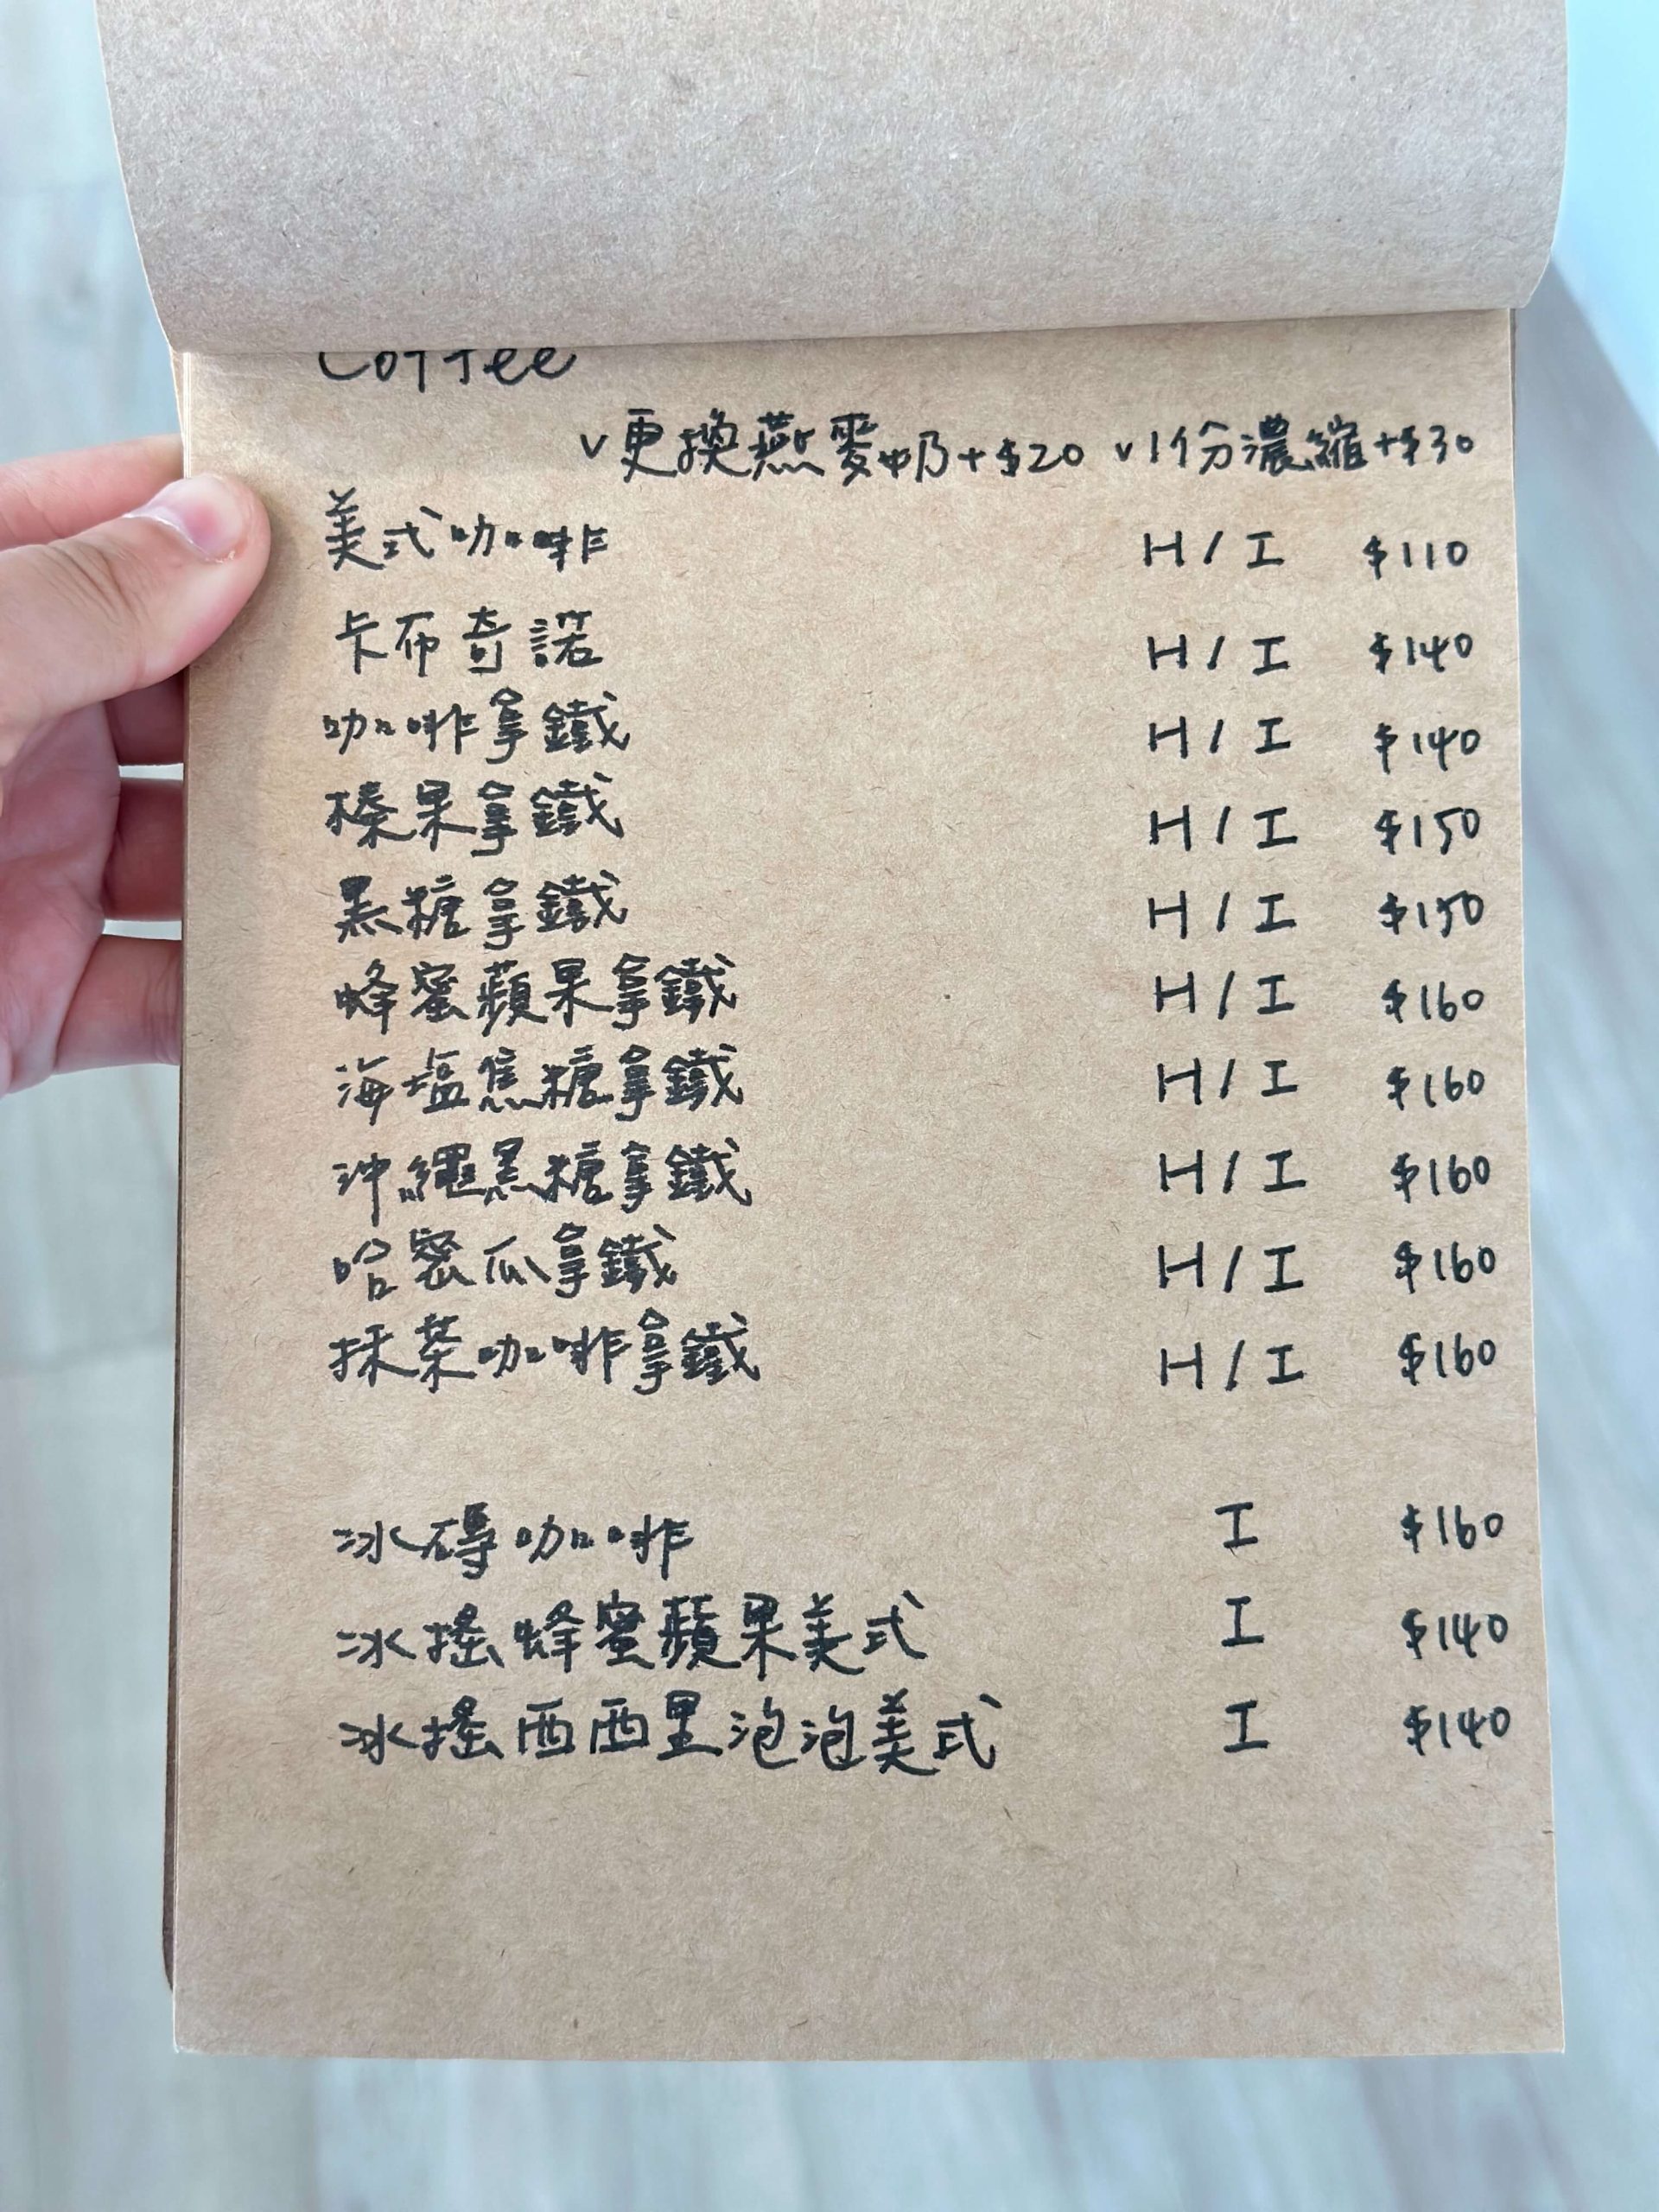 Coffee
v更換燕麥奶+$20 v1份濃縮+$30
美式咖啡 H/I $110
卡布奇諾 H/I $140
咖啡拿鐵 H/I $140
榛果拿鐵 H/I $150
黑糖拿鐵 H/I $150
蜂蜜蘋果拿鐵 H/I $160
海塩焦糖拿鐵 H/I $160
沖繩黑糖拿鐵 H/I $160
哈密瓜拿鐵 H/I $160
抹茶咖啡拿鐵 H/I $160
冰磚咖啡 I $160
冰搖蜂蜜蘋果美式 I $140
冰搖西西里泡泡美式 I $140